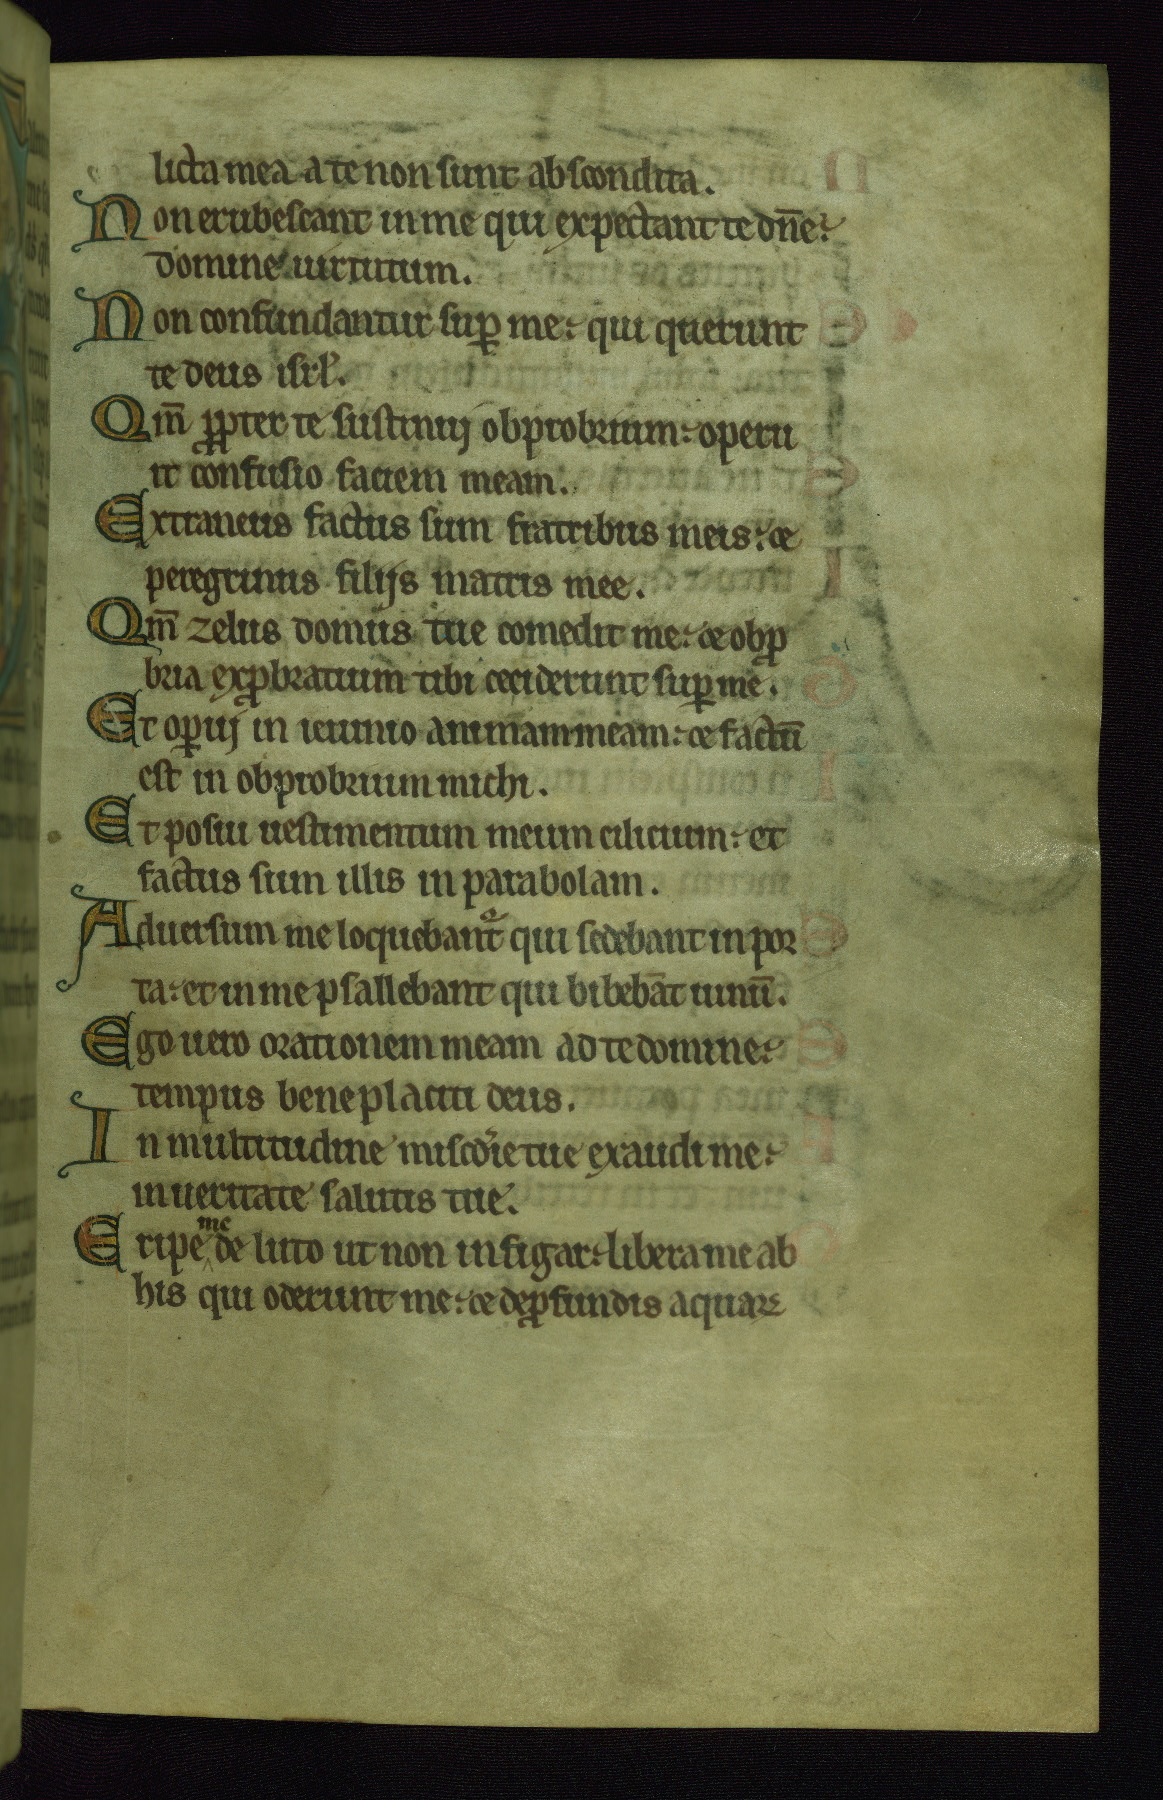 licta mea a te non sunt abscondita.
Non erubescant in me qui expectant te dn̄e:
domine uirtutum.
Non confundantur suꝑ me: qui querunt
te deus isrl'.
Qm̄ ꝓpter te sustinuj obprobrium: operu
it confusio faciem meam.
Extraneus factus sum fratribus meis: &
peregrinus filijs matris mee.
Qm̄ zelus domus tue comedit me: & obꝓ
bria exꝓbratium tibi ceciderunt suꝑ me.
Et oꝑuj in ieiunio animam meam: & factū
est in obprobrium michi.
Et posui uestimentum meum cilicium: et
factus sum illis in parabolam.
Aduersum me loquebant᷑ qui sedebant in por
ta: et in me psallebant qui bibebāt uinū.
Ego uero orationem meam ad te domine:
tempus beneplaciti deus.
In multitudine misc̄die tue exaudi me:
in ueritate salutis tue.
Eripe me de luto ut non infigar: libera me ab
his qui oderunt me: & de ꝓfundis aquaꝝ